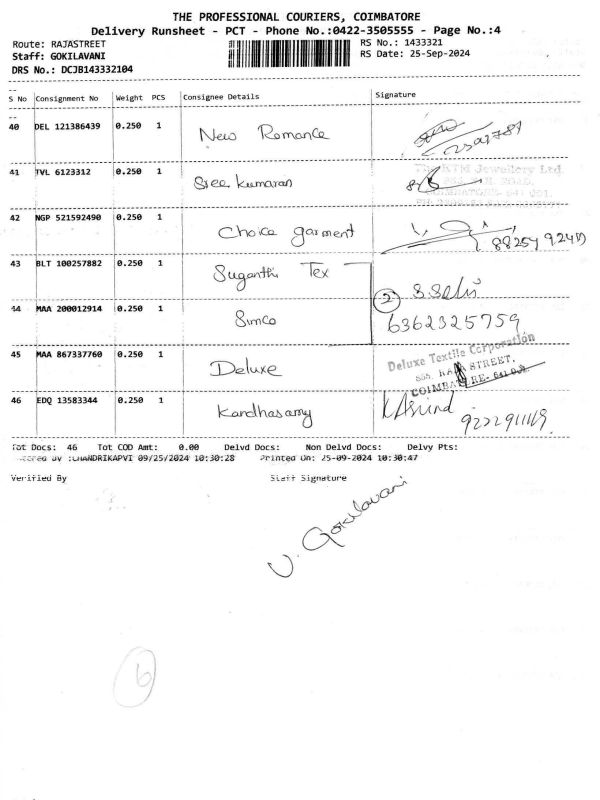 THE PROFESSIONAL COURIERS, COIMBATORE
Delivery Runsheet - PCT - Phone No.:0422-3505555 - Page No.:4
Route: RAJASTREET RS No.: 1433321
Staff: GOKILAVANI RS Date: 25-Sep-2024
DRS No.: DCJB143332104
S No Consignment No Weight PCS Consignee Details Signature
40 DEL 121386439 0.250 1 New Romance
41 TVL 6123312 0.250 1 Sree Kumaran
The KTM Jewellery Ltd.
42 NGP 521592490 0.250 1 Choice garment
43 BLT 100257882 0.250 1 Suganthi Tex
2 S. Selvi
44 MAA 200012914 0.250 1 Simco 6362325759
45 MAA 867337760 0.250 1 Deluxe
Deluxe Textile Corporation
STREET.
46 EDQ 13583344 0.250 1 Kandhasamy
Tot Docs: 46 Tot COD Amt: 0.00 Delvd Docs: Non Delvd Docs: Delvy Pts:
By :CHANDRIKAPVI 09/25/2024 10:30:28 Printed On: 25-09-2024 10:30:47
Verified By Staff Signature
V. Gokilavani
6